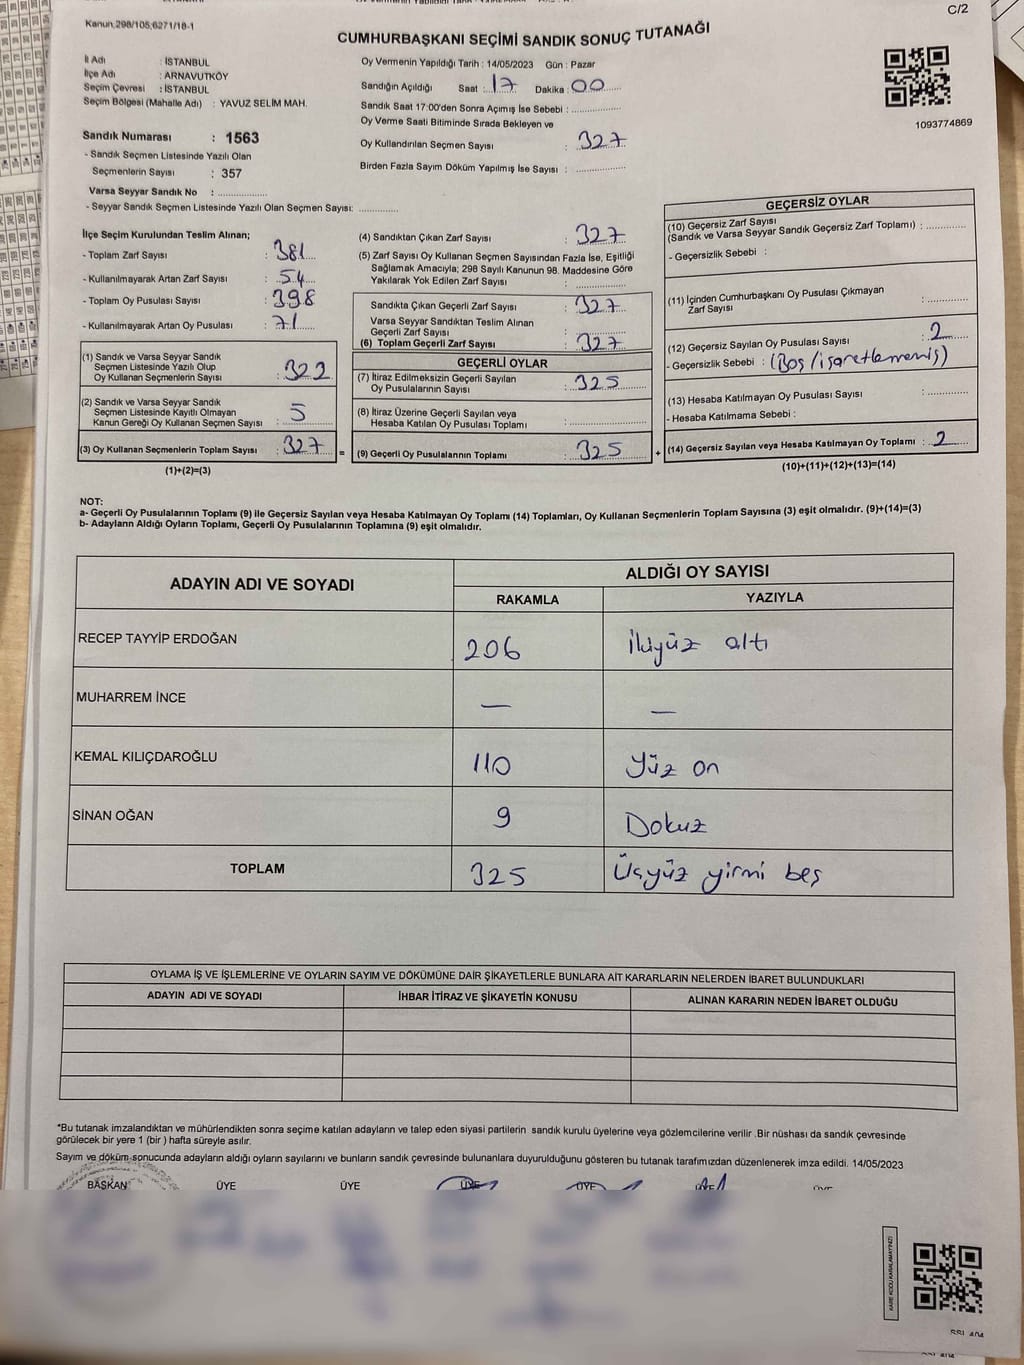 C/2
Kanun,298/105,6271/18-1
CUMHURBAŞKANI SEÇİMİ SANDIK SONUÇ TUTANAĞI
İl Adı : İSTANBUL
İlçe Adı : ARNAVUTKÖY
Seçim Çevresi : İSTANBUL
Seçim Bölgesi (Mahalle Adı) : YAVUZ SELİM MAH.
Oy Vermenin Yapıldığı Tarih : 14/05/2023 Gün : Pazar
Sandığın Açıldığı Saat : 17 Dakika : 00
Sandık Saat 17:00'den Sonra Açımış İse Sebebi : ..............
Oy Verme Saati Bitiminde Sırada Bekleyen ve
Oy Kullandırılan Seçmen Sayısı : 327
Birden Fazla Sayım Döküm Yapılmış İse Sayısı : ..............
1093774869
Sandık Numarası : 1563
- Sandık Seçmen Listesinde Yazılı Olan
Seçmenlerin Sayısı : 357
Varsa Seyyar Sandık No : ..............
- Seyyar Sandık Seçmen Listesinde Yazılı Olan Seçmen Sayısı: ............
İlçe Seçim Kurulundan Teslim Alınan;
- Toplam Zarf Sayısı : 381
- Kullanılmayarak Artan Zarf Sayısı : 54
- Toplam Oy Pusulası Sayısı : 398
- Kullanılmayarak Artan Oy Pusulası : 71
(1) Sandık ve Varsa Seyyar Sandık
Seçmen Listesinde Yazılı Olup
Oy Kullanan Seçmenlerin Sayısı : 322
(2) Sandık ve Varsa Seyyar Sandık
Seçmen Listesinde Kayıtlı Olmayan
Kanun Gereği Oy Kullanan Seçmen Sayısı : 5
(3) Oy Kullanan Seçmenlerin Toplam Sayısı : 327
(1)+(2)=(3)
=
(4) Sandıktan Çıkan Zarf Sayısı : 327
(5) Zarf Sayısı Oy Kullanan Seçmen Sayısından Fazla İse, Eşitliği
Sağlamak Amacıyla; 298 Sayılı Kanunun 98. Maddesine Göre
Yakılarak Yok Edilen Zarf Sayısı : ..............
Sandıkta Çıkan Geçerli Zarf Sayısı : 327
Varsa Seyyar Sandıktan Teslim Alınan
Geçerli Zarf Sayısı
(6) Toplam Geçerli Zarf Sayısı : 327
GEÇERLİ OYLAR
(7) İtiraz Edilmeksizin Geçerli Sayılan
Oy Pusulalarının Sayısı : 325
(8) İtiraz Üzerine Geçerli Sayılan veya
Hesaba Katılan Oy Pusulası Toplamı : ..............
(9) Geçerli Oy Pusulalarının Toplamı : 325
+
GEÇERSİZ OYLAR
(10) Geçersiz Zarf Sayısı
(Sandık ve Varsa Seyyar Sandık Geçersiz Zarf Toplamı) : ............
- Geçersizlik Sebebi :
(11) İçinden Cumhurbaşkanı Oy Pusulası Çıkmayan
Zarf Sayısı : ............
(12) Geçersiz Sayılan Oy Pusulası Sayısı : 2
- Geçersizlik Sebebi : (Boş/işaretlememiş)
(13) Hesaba Katılmayan Oy Pusulası Sayısı : ............
- Hesaba Katılmama Sebebi :
(14) Geçersiz Sayılan veya Hesaba Katılmayan Oy Toplamı : 2
(10)+(11)+(12)+(13)=(14)
NOT:
a- Geçerli Oy Pusulalarının Toplamı (9) ile Geçersiz Sayılan veya Hesaba Katılmayan Oy Toplamı (14) Toplamları, Oy Kullanan Seçmenlerin Toplam Sayısına (3) eşit olmalıdır. (9)+(14)=(3)
b- Adayların Aldığı Oyların Toplamı, Geçerli Oy Pusulalarının Toplamına (9) eşit olmalıdır.
ADAYIN ADI VE SOYADI
ALDIĞI OY SAYISI
RAKAMLA YAZIYLA
RECEP TAYYİP ERDOĞAN 206 İkiyüz altı
MUHARREM İNCE — —
KEMAL KILIÇDAROĞLU 110 Yüz on
SİNAN OĞAN 9 Dokuz
TOPLAM 325 Üçyüz yirmi beş
OYLAMA İŞ VE İŞLEMLERİNE VE OYLARIN SAYIM VE DÖKÜMÜNE DAİR ŞİKAYETLERLE BUNLARA AİT KARARLARIN NELERDEN İBARET BULUNDUKLARI
ADAYIN ADI VE SOYADI İHBAR İTİRAZ VE ŞİKAYETİN KONUSU ALINAN KARARIN NEDEN İBARET OLDUĞU
*Bu tutanak imzalandıktan ve mühürlendikten sonra seçime katılan adayların ve talep eden siyasi partilerin sandık kurulu üyelerine veya gözlemcilerine verilir .Bir nüshası da sandık çevresinde
görülecek bir yere 1 (bir ) hafta süreyle asılır.
Sayım ve döküm sonucunda adayların aldığı oyların sayılarını ve bunların sandık çevresinde bulunanlara duyurulduğunu gösteren bu tutanak tarafımızdan düzenlenerek imza edildi. 14/05/2023
BAŞKAN ÜYE ÜYE ÜYE ÜYE ÜYE
KARE KODU KARALAMAYINIZ!